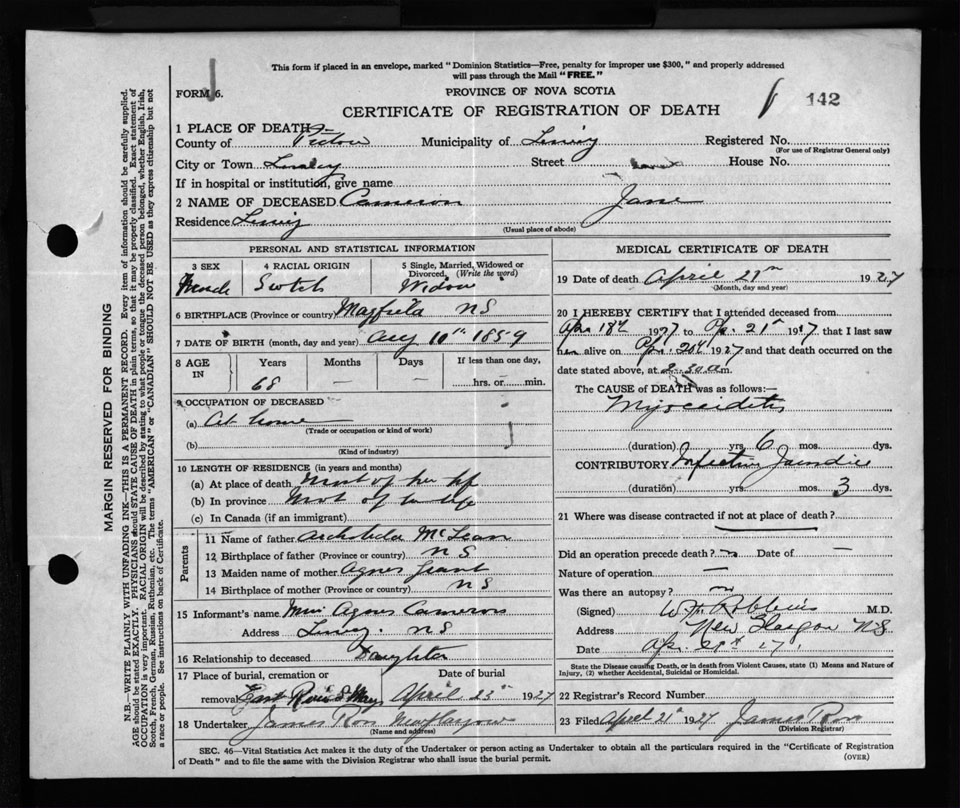 This form if placed in an envelope, marked "Dominion Statistics—Free, penalty for improper use $300," and properly addressed
will pass through the Mail "FREE."
FORM 6.
PROVINCE OF NOVA SCOTIA
CERTIFICATE OF REGISTRATION OF DEATH
142
1 PLACE OF DEATH—
County of Pictou Municipality of Registered No.
(For use of Registrar General only)
City or Town Street House No.
If in hospital or institution, give name
2 NAME OF DECEASED Cameron Jane
Residence
(Usual place of abode)
PERSONAL AND STATISTICAL INFORMATION
3 SEX
4 RACIAL ORIGIN
5 Single, Married, Widowed or
Divorced. (Write the word)
Female Scotch Widow
6 BIRTHPLACE (Province or country) NS
7 DATE OF BIRTH (month, day and year) Aug 10th 1859
8 AGE
IN
Years
Months
Days
If less than one day,
68 — —
hrs. or min.
9 OCCUPATION OF DECEASED
(a) At home
(Trade or occupation or kind of work)
(b)
(Kind of industry)
10 LENGTH OF RESIDENCE (in years and months)
(a) At place of death Most of her life
(b) In province Most of her life
(c) In Canada (if an immigrant)
Parents
11 Name of father McLean
12 Birthplace of father (Province or country) NS
13 Maiden name of mother Agnes Grant
14 Birthplace of mother (Province or country) NS
15 Informant's name Agnes Cameron
Address NS
16 Relationship to deceased Daughter
17 Place of burial, cremation or
removal East River St Marys
Date of burial
April 23 1927
18 Undertaker James Ross New Glasgow
(Name and address)
MEDICAL CERTIFICATE OF DEATH
19 Date of death April 1927
(Month, day and year)
20 I HEREBY CERTIFY that I attended deceased from
Apr. 18th 1927 to Apr. 21st 1927 that I last saw
her alive on Apr. 20th 1927 and that death occurred on the
date stated above, at 2.30 a m.
The CAUSE of DEATH was as follows:—
Myocarditis
(duration) yrs. 6 mos. dys.
CONTRIBUTORY Infective Jaundice
(duration) yrs. mos. 3 dys.
21 Where was disease contracted if not at place of death?
Did an operation precede death? no Date of —
Nature of operation —
Was there an autopsy? no
(Signed) Robbins M.D.
Address New Glasgow N.S.
Date Apr. 21st 27
State the Disease causing Death, or in death from Violent Causes, state (1) Means and Nature of
Injury, (2) whether Accidental, Suicidal or Homicidal.
22 Registrar's Record Number
23 Filed April 21st 1927 James Ross
(Division Registrar)
SEC. 46—Vital Statistics Act makes it the duty of the Undertaker or person acting as Undertaker to obtain all the particulars required in the "Certificate of Registration
of Death" and to file the same with the Division Registrar who shall issue the burial permit.
(OVER)
MARGIN RESERVED FOR BINDING
N.B.—WRITE PLAINLY WITH UNFADING INK—THIS IS A PERMANENT RECORD. Every item of information should be carefully supplied.
AGE should be stated EXACTLY. PHYSICIANS should STATE CAUSE OF DEATH in plain terms, so that it may be properly classified. Exact statement of
OCCUPATION is very important. RACIAL ORIGIN will be described by stating to what people or tongue the deceased person belonged, whether English, Irish,
Scotch, French, German, Russian, Ruthenian, etc. The terms "AMERICAN" or "CANADIAN" SHOULD NOT BE USED as they express citizenship but not
a race or people. See instructions on back of Certificate.